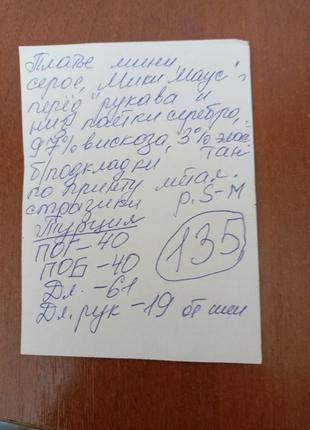 Платье мини,
серое, "Мики Маус" -
перёд, рукава и
низ паетки серебро,
97% вискоза, 3% элас
тан
б/подкладки
по принту метал.
стразики р. S-M
Турция
ПОГ-40
135
ПОБ-40
Дл. -61
Дл. рук -19 от шеи